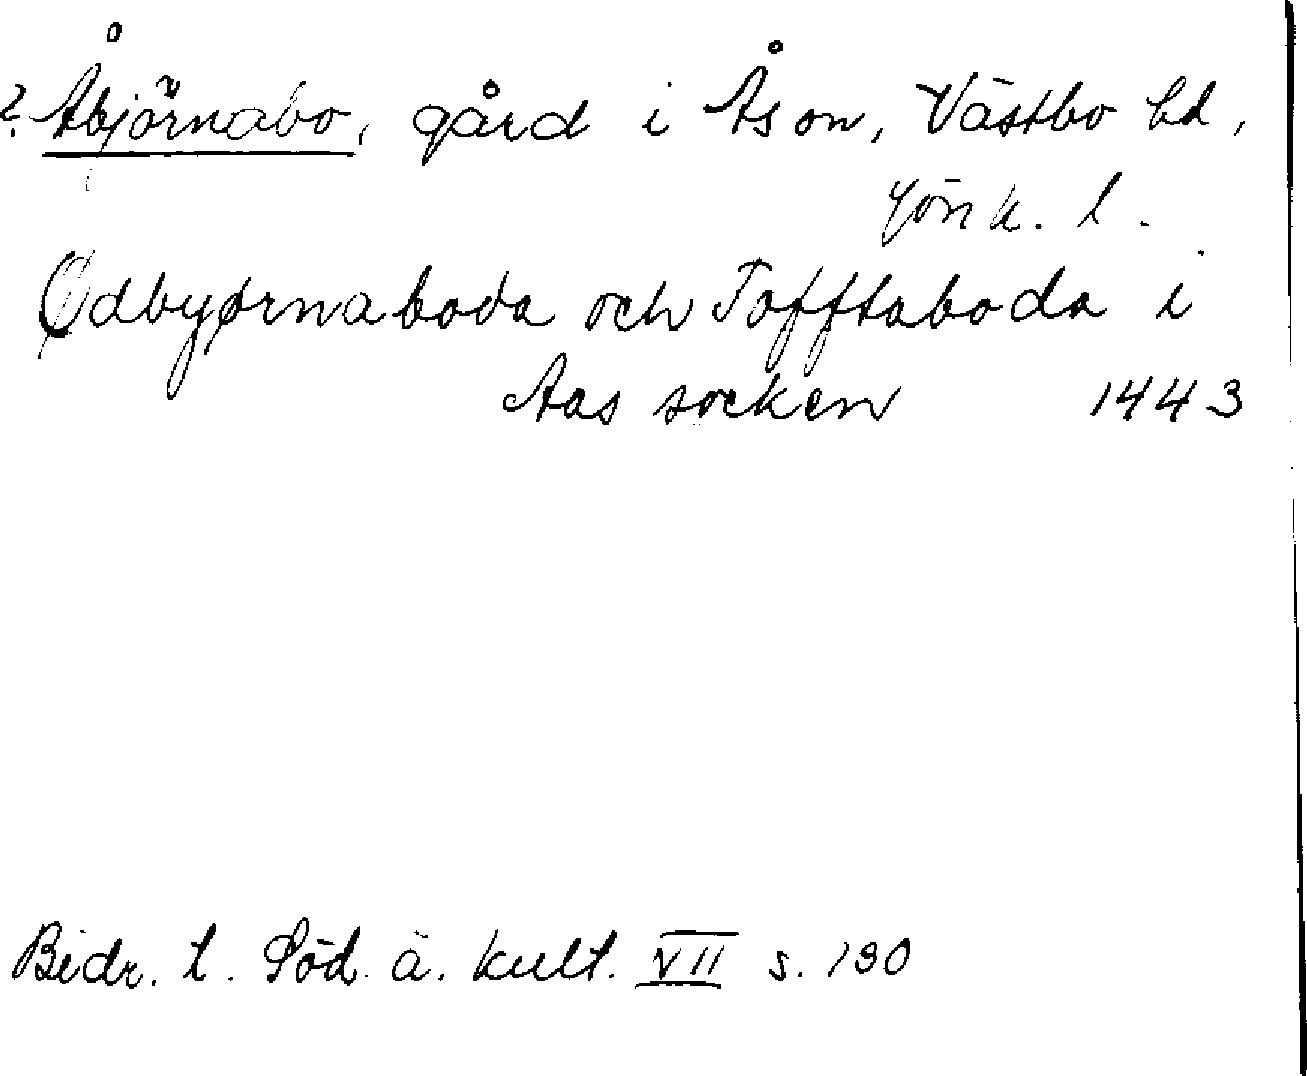 ? Åbjörnabo, gård i Ås sn, Västbo hd,
Jönk. l.
Ødbyørnaboda och Tofftaboda i
Aas socken 1443
Bidr. t. Söd. ä. kult. VII s. 130